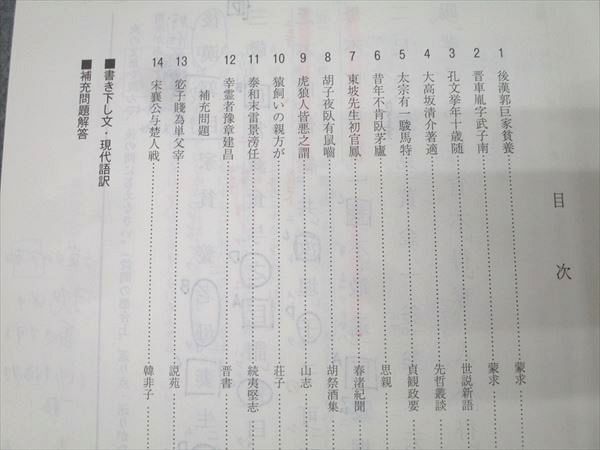 目次
1 後漢郭巨家貧養……蒙求
2 晋車胤字武子南……蒙求
3 孔文挙年十歳随……世説新語
4 大高坂清介著適……先哲叢談
5 太宗有一駿馬特……貞観政要
6 昔年不肯臥茅廬……思親
7 東坡先生初官鳳……春渚紀聞
8 胡子夜臥有鼠嚙……胡祭酒集
9 虎狼人皆悪之謂……山志
10 猿飼いの親方が……荘子
11 泰和末雷景滂任……続夷堅志
12 幸霊者豫章建昌……晋書
補充問題
13 宓子賤為単父宰……説苑
14 宋襄公与楚人戦……韓非子
■書き下し文・現代語訳
■補充問題解答